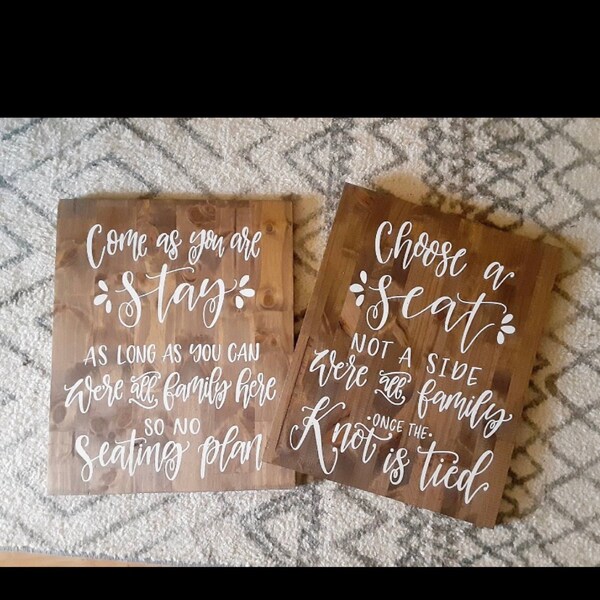 Come as you are
Stay
AS LONG AS YOU CAN
Were all family here
SO NO
Seating plan
Choose a
Seat
NOT A SIDE
Were all family
ONCE THE
Knot is tied